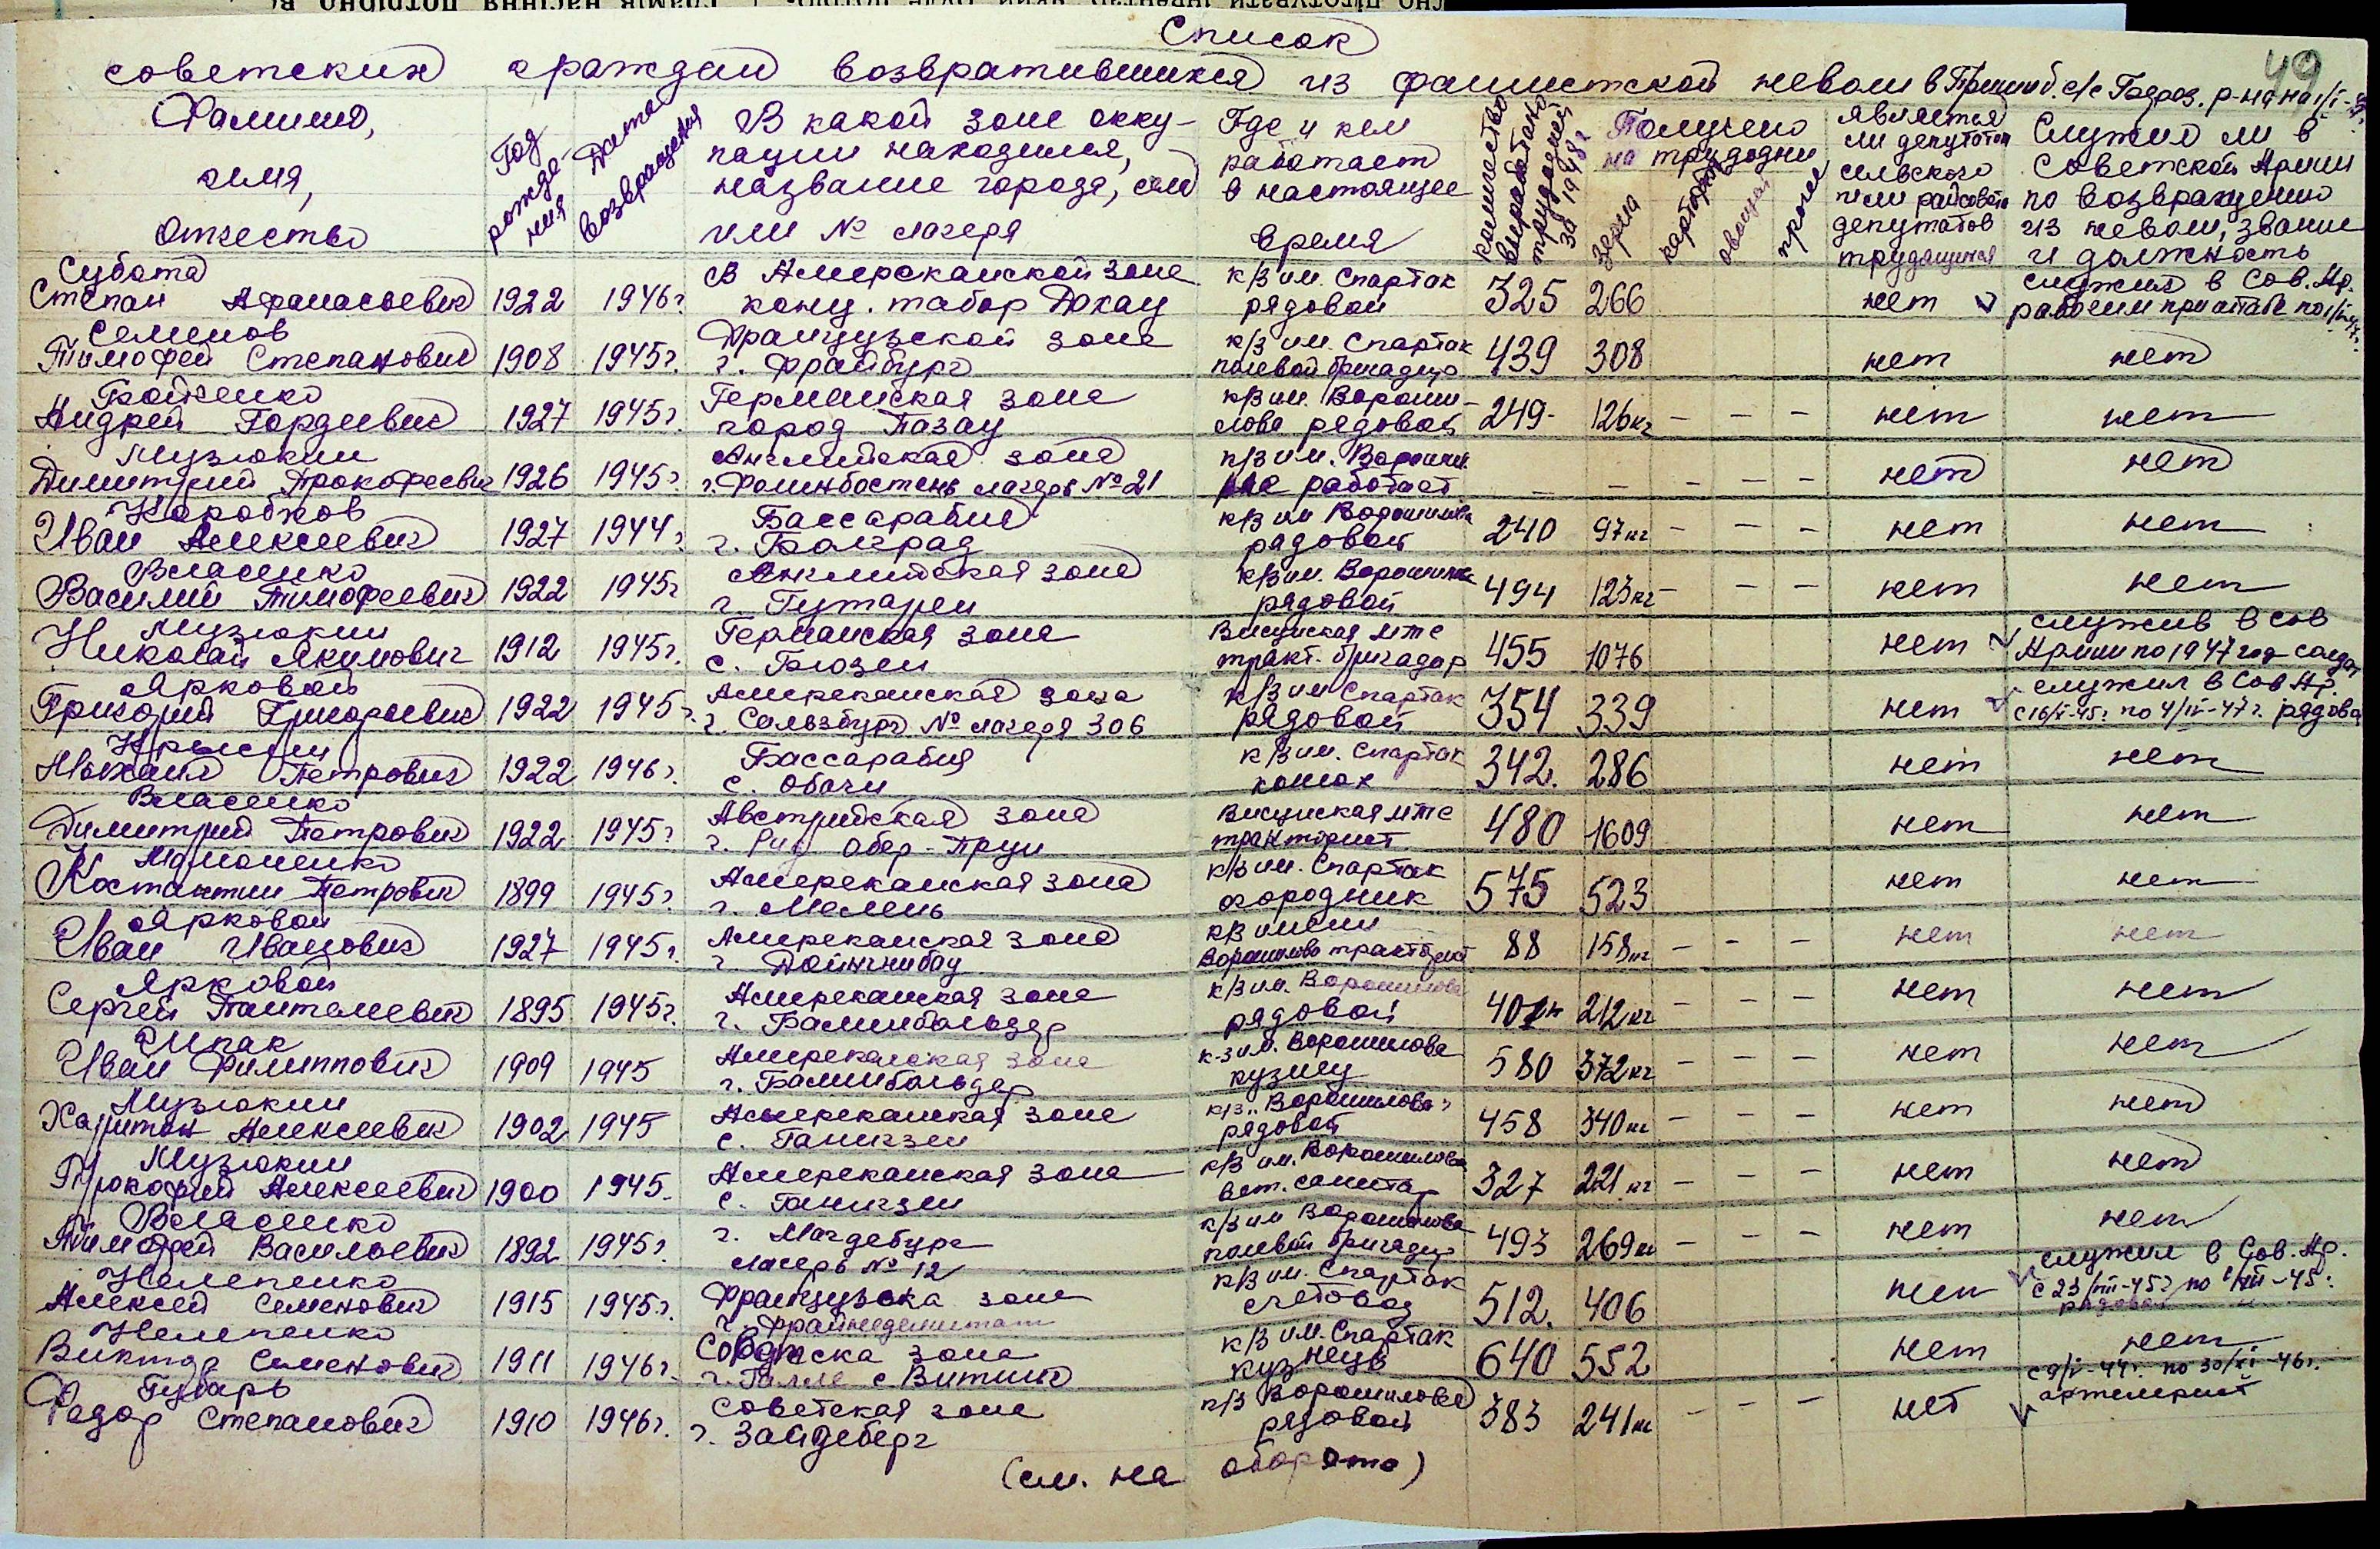 49
Список
советских граждан возвратившихся из фашистской неволи в Пришиб. с/с
Фамилия,
имя,
отчество
Год рожде-
ния
Дата
возвращения
В какой зоне окку-
пации находился,
название города, села
или № лагеря
Где и кем
работает
в настоящее
время
количество
выработано
трудодней
за 1948г
Получено
на трудодни
зерна
картофель
овощей
прочее
является
ли депутатом
сельского
или райсовета
депутатов
трудящихся
Служил ли в
Советской Армии
по возвращению
из неволи, звание
и должность
Субота
Степан Афанасьевич 1922 1946г. В Америкаской зоне
конц. табор Дахау к/з им. Спартак
рядовой 325 266 нет служил в Сов. Ар.
рабочим при штабе по
Семенов
Тимофей Степанович 1908 1945г. Французской зоне
г. Фрайбург к/з им. Спартак
полевой бригадир 439 308 нет нет
Андрей Гордеевич 1927 1945г. Германская зона
город Пазау к/з им. Вороши-
лова рядовой 249- 126кг - - - нет нет
Музюкин
Димитрий Прокофеевич 1926 1945г Английская зона
лагерь № 21 к/з им. Ворошил.
не работает - - - - - нет нет
Коробков
Иван Алексеевич 1927 1944г. Бассарабия
г. Болград к/з им Ворошилова
рядовой 240 97кг - - - нет нет
Власенко
Василий Тимофеевич 1922 1945г Английская зона
г. Гутарен к/з им. Ворошилова
рядовой 494 123кг - - - нет нет
Музюкин
Николай Якумович 1912 1945г. Германская зона
с. Бюзен Висунская мтс
тракт. бригадир 455 1076 нет служив в Сов
Армии по 1947 год солдат
Ярковой
Григорий Григорьевич 1922 1945г. Америкакская зона
г. Сальзбург № лагеря 306 к/з им Спартак
рядовой 354 339 нет служил в Сов Ар.
с 16/V-45г по 4/IV-47г. рядовой
Михаил Петрович 1922 1946г. Бассарабия
с. Обачи к/з им. Спартак
342. 286 нет нет
Власенко
Димитрий Петрович 1922 1945г Австрийская зона
г. Рид Обер-Прун Висунская мтс
тракторист 480 1609 нет нет
Костянтин Петрович 1899 1945г. Америкакская зона
г. Мелень к/з им. Спартак
огородник 575 523 нет нет
Ярковой
Иван Иванович 1927 1945г. Америкакская зона
к/з имени
Ворошилова тракторист 88 158кг - - - нет нет
Ярковой
Сергей Пантелеевич 1895 1945г. Америкакская зона
г. Баминбальдер к/з им. Ворошилова
рядовой 212кг - - - нет нет
Шпак
Иван Филиппович 1909 1945 Америкакская зона
г. Баминбальдер к-з им. Ворошилова
кузнец 580 372кг - - - нет нет
Музюкин
Харитон Алексеевич 1902 1945 Америкакская зона
с. Ганигзен к/з „Ворошилова"
рядовой 458 340кг - - - нет нет
Музюкин
Прокофий Алексеевич 1900 1945. Америкакская зона
с. Ганигзен к/з им. Ворошилова
вет. санитар 327 221 кг - - - нет нет
Власенко
Тимофей Васильевич 1892 1945г. г. Магдебург
лагерь № 12 к/з им Ворошилова
полевой бригадир 493 269кг - - - нет нет
Нелепенко
Алексей Семенович 1915 1945г. Французска зона
к/з им. Спартак
счетовод 512. 406 нет служил в Сов. Ар.
рядовой
Нелепенко
Виктор Семенович 1911 1946г. Советска зона
г. Галле с. Витин к/з им. Спартак
кузнец 640 552 нет нет
Губарь
Федор Степанович 1910 1946г. Советская зона
г. Зайдеберг к/з Ворошилова
рядовой 383 241кг - - - нет с 9/V-44г. по 30/XI-46г.
артилерист
(см. на обороте)